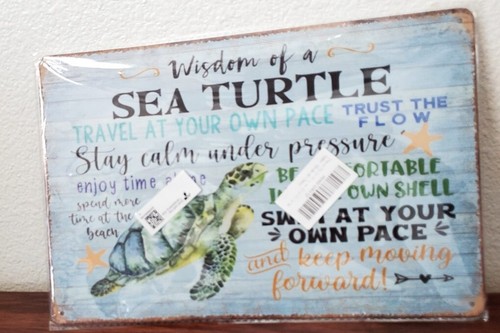 Wisdom of a
SEA TURTLE
TRAVEL AT YOUR OWN PACE
TRUST THE
FLOW
Stay calm under pressure
enjoy time
spend more
time at the
beach
BE
OWN SHELL
AT YOUR
OWN PACE
and keep moving
forward!